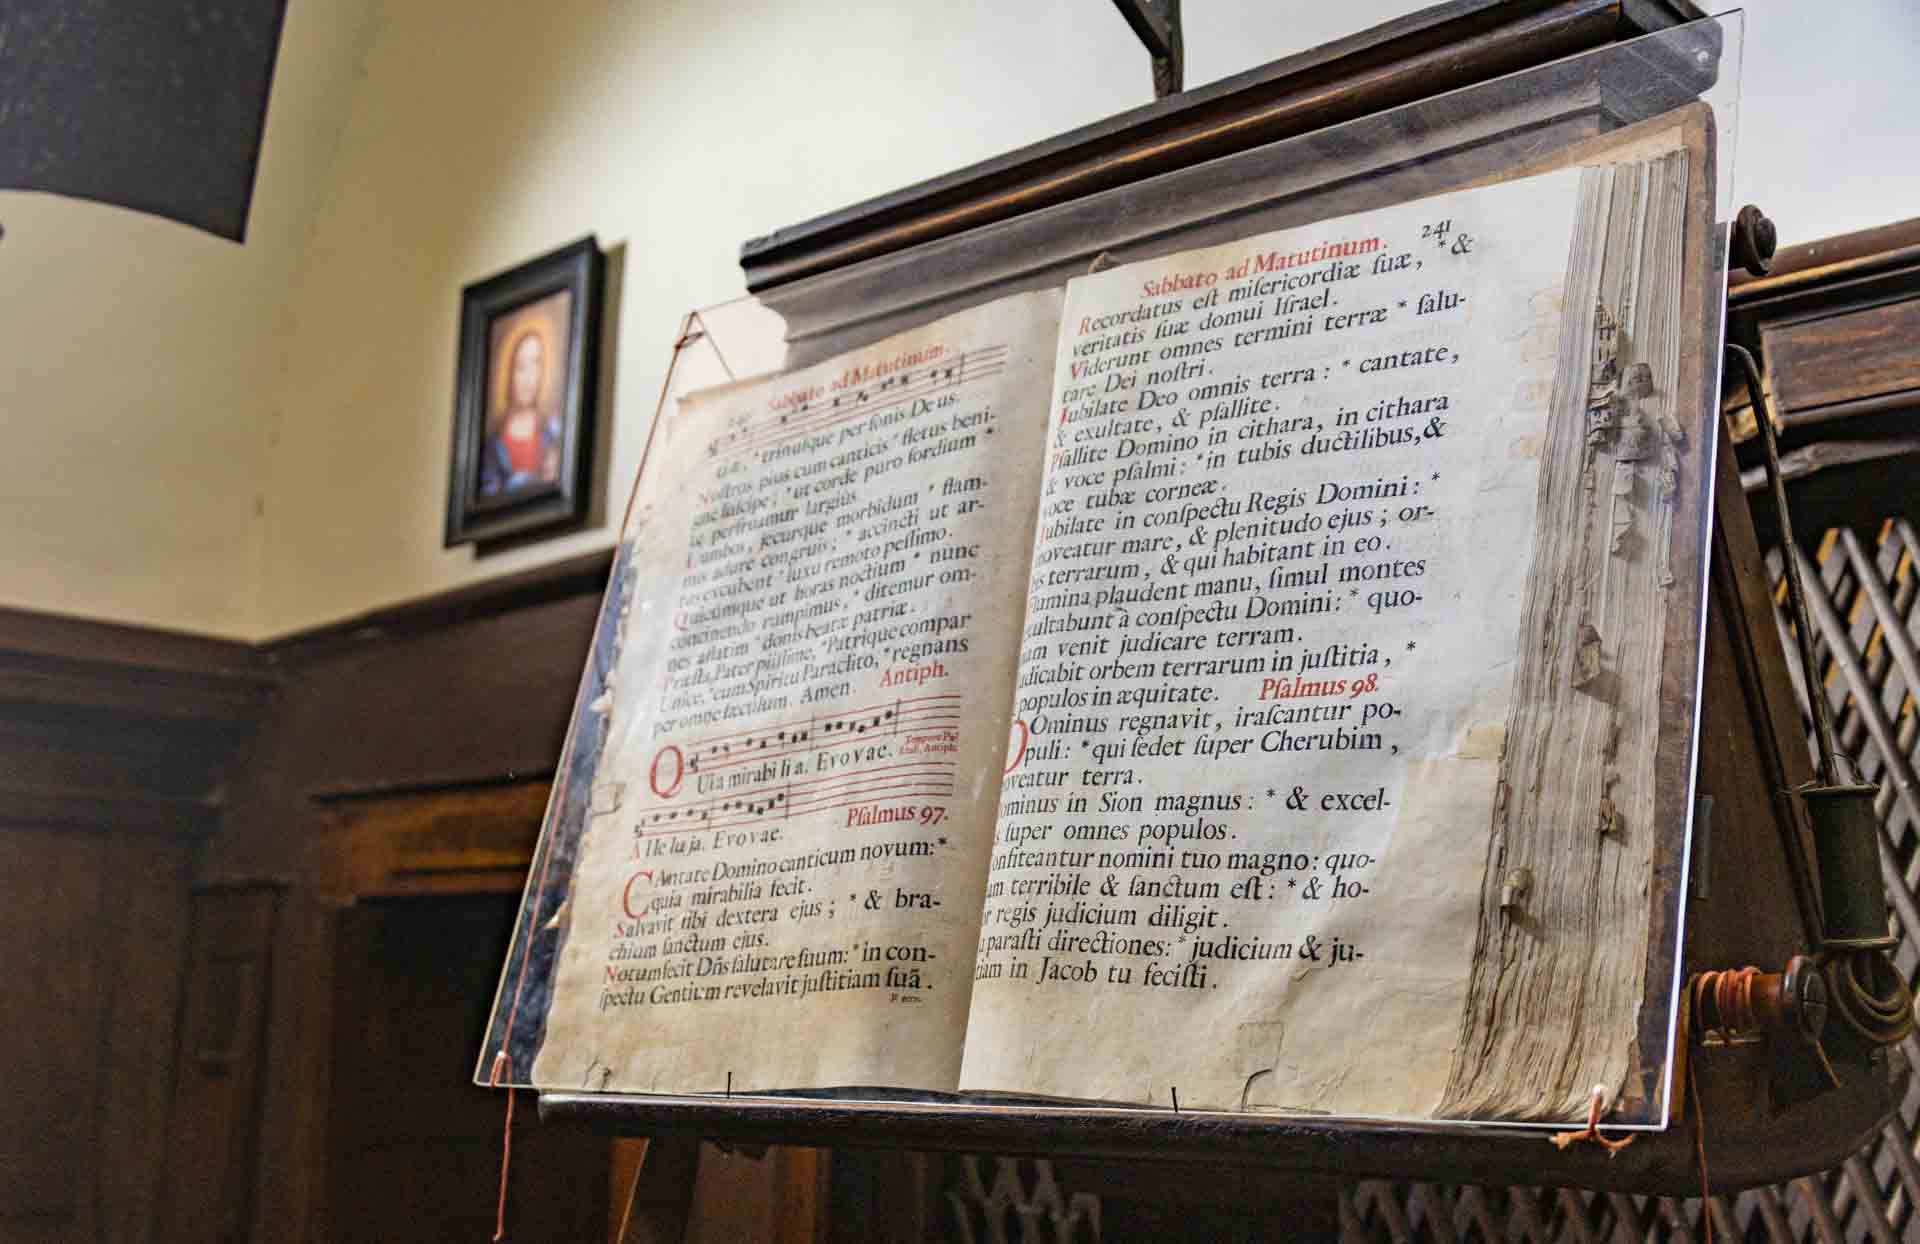 240
Sabbato ad Matutinum.
us. * trinusque personis Deus.
Nostros pius cum canticis * fletus beni-
gne suscipe; * ut corde puro sordium *
te perfruamur largius.
Lumbos, jecurque morbidum * flam-
mis adure congruis; * accincti ut ar-
tus excubent * luxu remoto pessimo.
Quicumque ut horas noctium * nunc
concinendo rumpimus, * ditemur om-
nes affatim * donis beatæ patriæ.
Præsta, Pater piissime, * Patrique compar
Unice, * cum Spiritu Paraclito, * regnans
per omne sæculum. Amen. Antiph.
QUia mirabi li a. Evovae. Tempore
Antiph.
Alle lu ja. Evovae. Psalmus 97.
CAntate Domino canticum novum: *
quia mirabilia fecit.
Salvavit sibi dextera ejus; * & bra-
chium sanctum ejus.
Notum fecit Dñs salutare suum: * in con-
spectu Gentium revelavit justitiam suã.
Sabbato ad Matutinum. 241
Recordatus est misericordiæ suæ, * &
veritatis suæ domui Israel.
Viderunt omnes termini terræ * salu-
tare Dei nostri.
Jubilate Deo omnis terra: * cantate,
& exultate, & psallite.
Psallite Domino in cithara, in cithara
& voce psalmi: * in tubis ductilibus, &
voce tubæ corneæ.
Jubilate in conspectu Regis Domini: *
moveatur mare, & plenitudo ejus; or-
bis terrarum, & qui habitant in eo.
Flumina plaudent manu, simul montes
exultabunt à conspectu Domini: * quo-
niam venit judicare terram.
Judicabit orbem terrarum in justitia, *
& populos in æquitate. Psalmus 98.
DOminus regnavit, irascantur po-
puli: * qui sedet super Cherubim,
moveatur terra.
Dominus in Sion magnus: * & excel-
sus super omnes populos.
Confiteantur nomini tuo magno: quo-
niam terribile & sanctum est: * & ho-
nor regis judicium diligit.
Tu parasti directiones: * judicium & ju-
stitiam in Jacob tu fecisti.